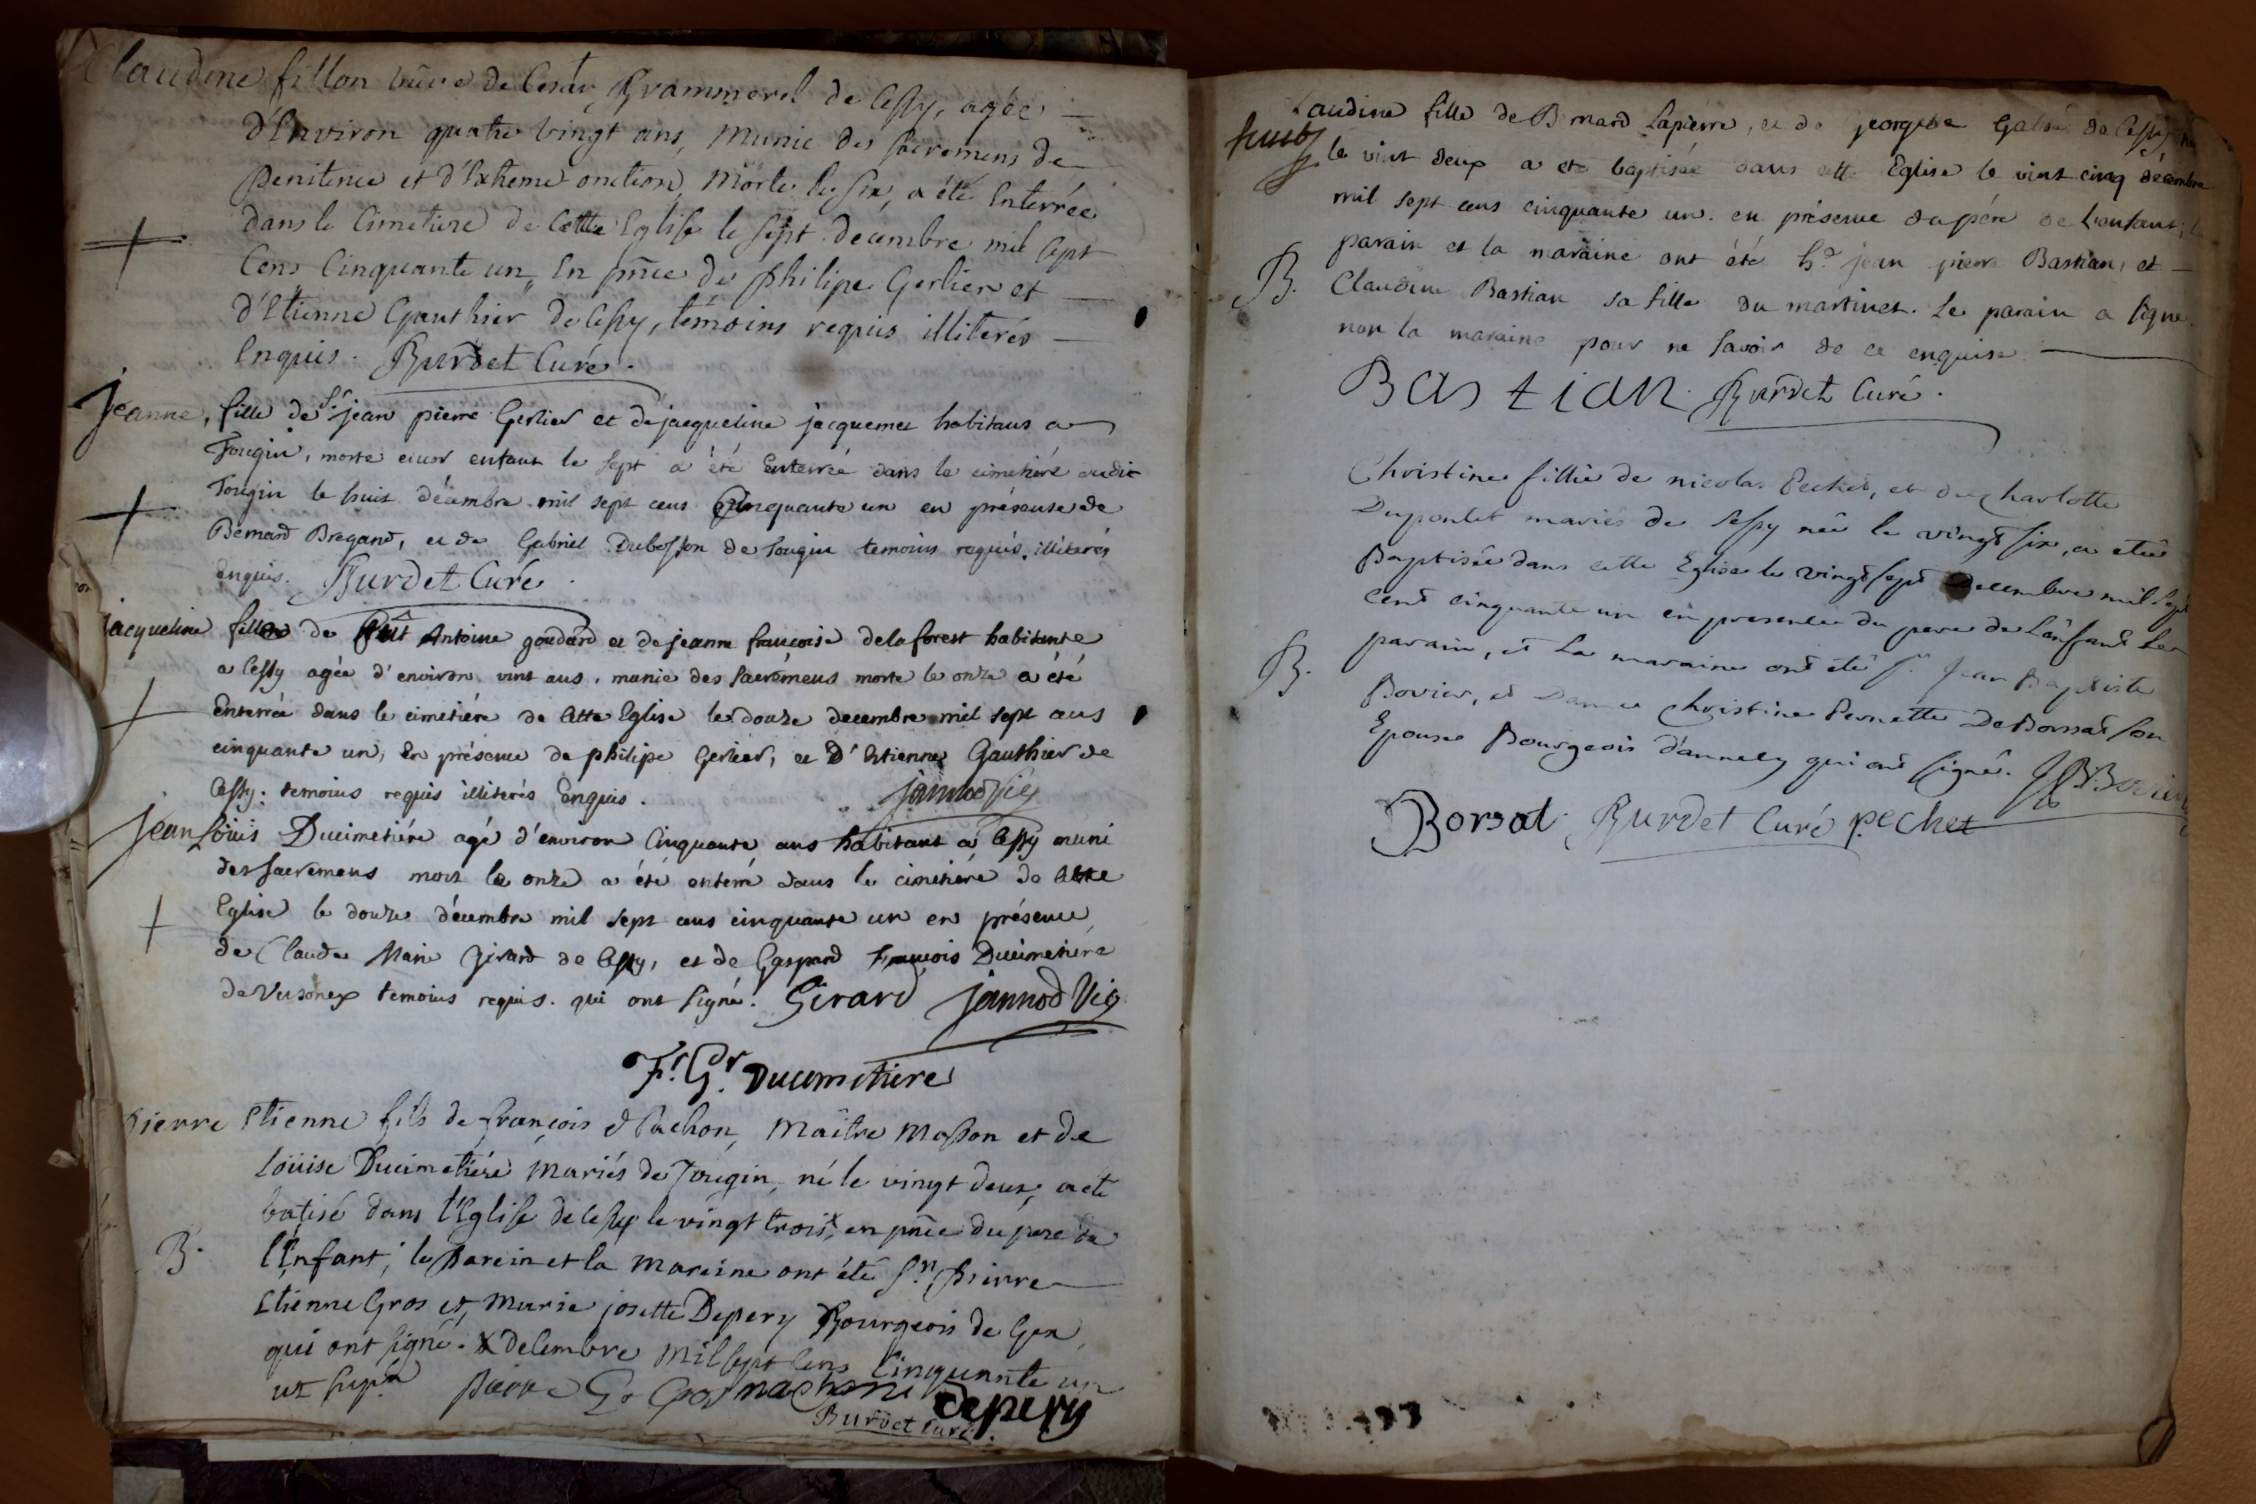 Claudine fillon vûve de Cesar Grammorel de Cessy, agée
d'Environ quatre vingt ans, munie des sacremens de
penitence et d'Extreme onction, morte le six, a été Enterrée
dans le Cimetiere de Cette Eglise le sept decembre mil sept
Cens Cinquante un, En pnce de philipe Gerlier et
d'Etienne Gauthier de Cessy, témoins requis illiterés
Enquis. Burdet Curé.
jeanne, fille de Sr jean pierre Gerlier et de jacqueline jacquemet habitans a
Tougin, morte encor enfant le sept a été Enterrée dans le cimetiére audit
Tougin le huit décembre mil sept cens Cinquante un en présense de
Bernard Bregand, et de Gabriel Dubosson de Tougin temoins requis illiterés
enquis. Burdet Curé.
jacqueline fille de Antoine goudard et de jeanne françoise delaforest habitante
a Cessy agée d'environ vint ans, munie des Sacrémens morte le onze a été
Enterrée dans le cimetiére de Cette Eglise le douze decembre mil sept cens
cinquante un, En présence de philipe Gerlier, et D'Etienne Gauthier de
Cessy. temoins requis illiterés Enquis. jannod Vic
jean Loüis Ducimetiére agé d'environ Cinquante ans habitant a Cessy muni
des Sacremens mort le onze a été enterré dans le cimetiére de Cette
Eglise le douze décembre mil sept cens cinquante un en présence
de Claude Marie Girard de Cessy, et de Gaspard françois Ducimetiére
de Vesonex temoins requis. qui ont signé. Girard jannod Vic
F. G. Ducimetiere
pierre Etienne fils de françois Machon, Maître Masson et de
Loüise Ducimetiére Mariés de Tougin, né le vingt deux, a eté
batisé dans l'Eglise de Cessy le vingt trois x en pnce du pere de
B. l'Enfant; le parein et la mareine ont été Sr pierre
Etienne Gros et Marie josette Depery Bourgeois de Gex,
qui ont signé. x decembre mil sept cens Cinquante un
ut supra pierre E Gros machon depery
Burdet Curé.
Claudine fille de Bernard Lapierre, et de georgette de Cessy née
le vint deux a eté baptisée dans cette Eglise le vint cinq décembre
mil sept cens cinquante un. en présence du pére de l'enfant, le
parain et la maraine ont été hble jean pierre Bastian, et
B. Claudine Bastian sa fille du martinet. Le parain a signé
non la maraine pour ne savoir de ce enquise
Bastian. Burdet Curé.
Christine fillie de nicolas Pechet, et de Charlotte
Duponlet mariés de Cessy née le vingt six, a etée
Baptisée dans cette Eglise le vingt sept decembre mil sept
cent cinquante un en presence du pere de L'anfant Le
B. parain, et La maraine ont été Sr Jean Baptiste
Bovier, et Dame Christine Pernette De Borsat son
Epouse Bourgeois d'annecy qui ont signé. J B Bovier
Borsat. Burdet Curé pechet